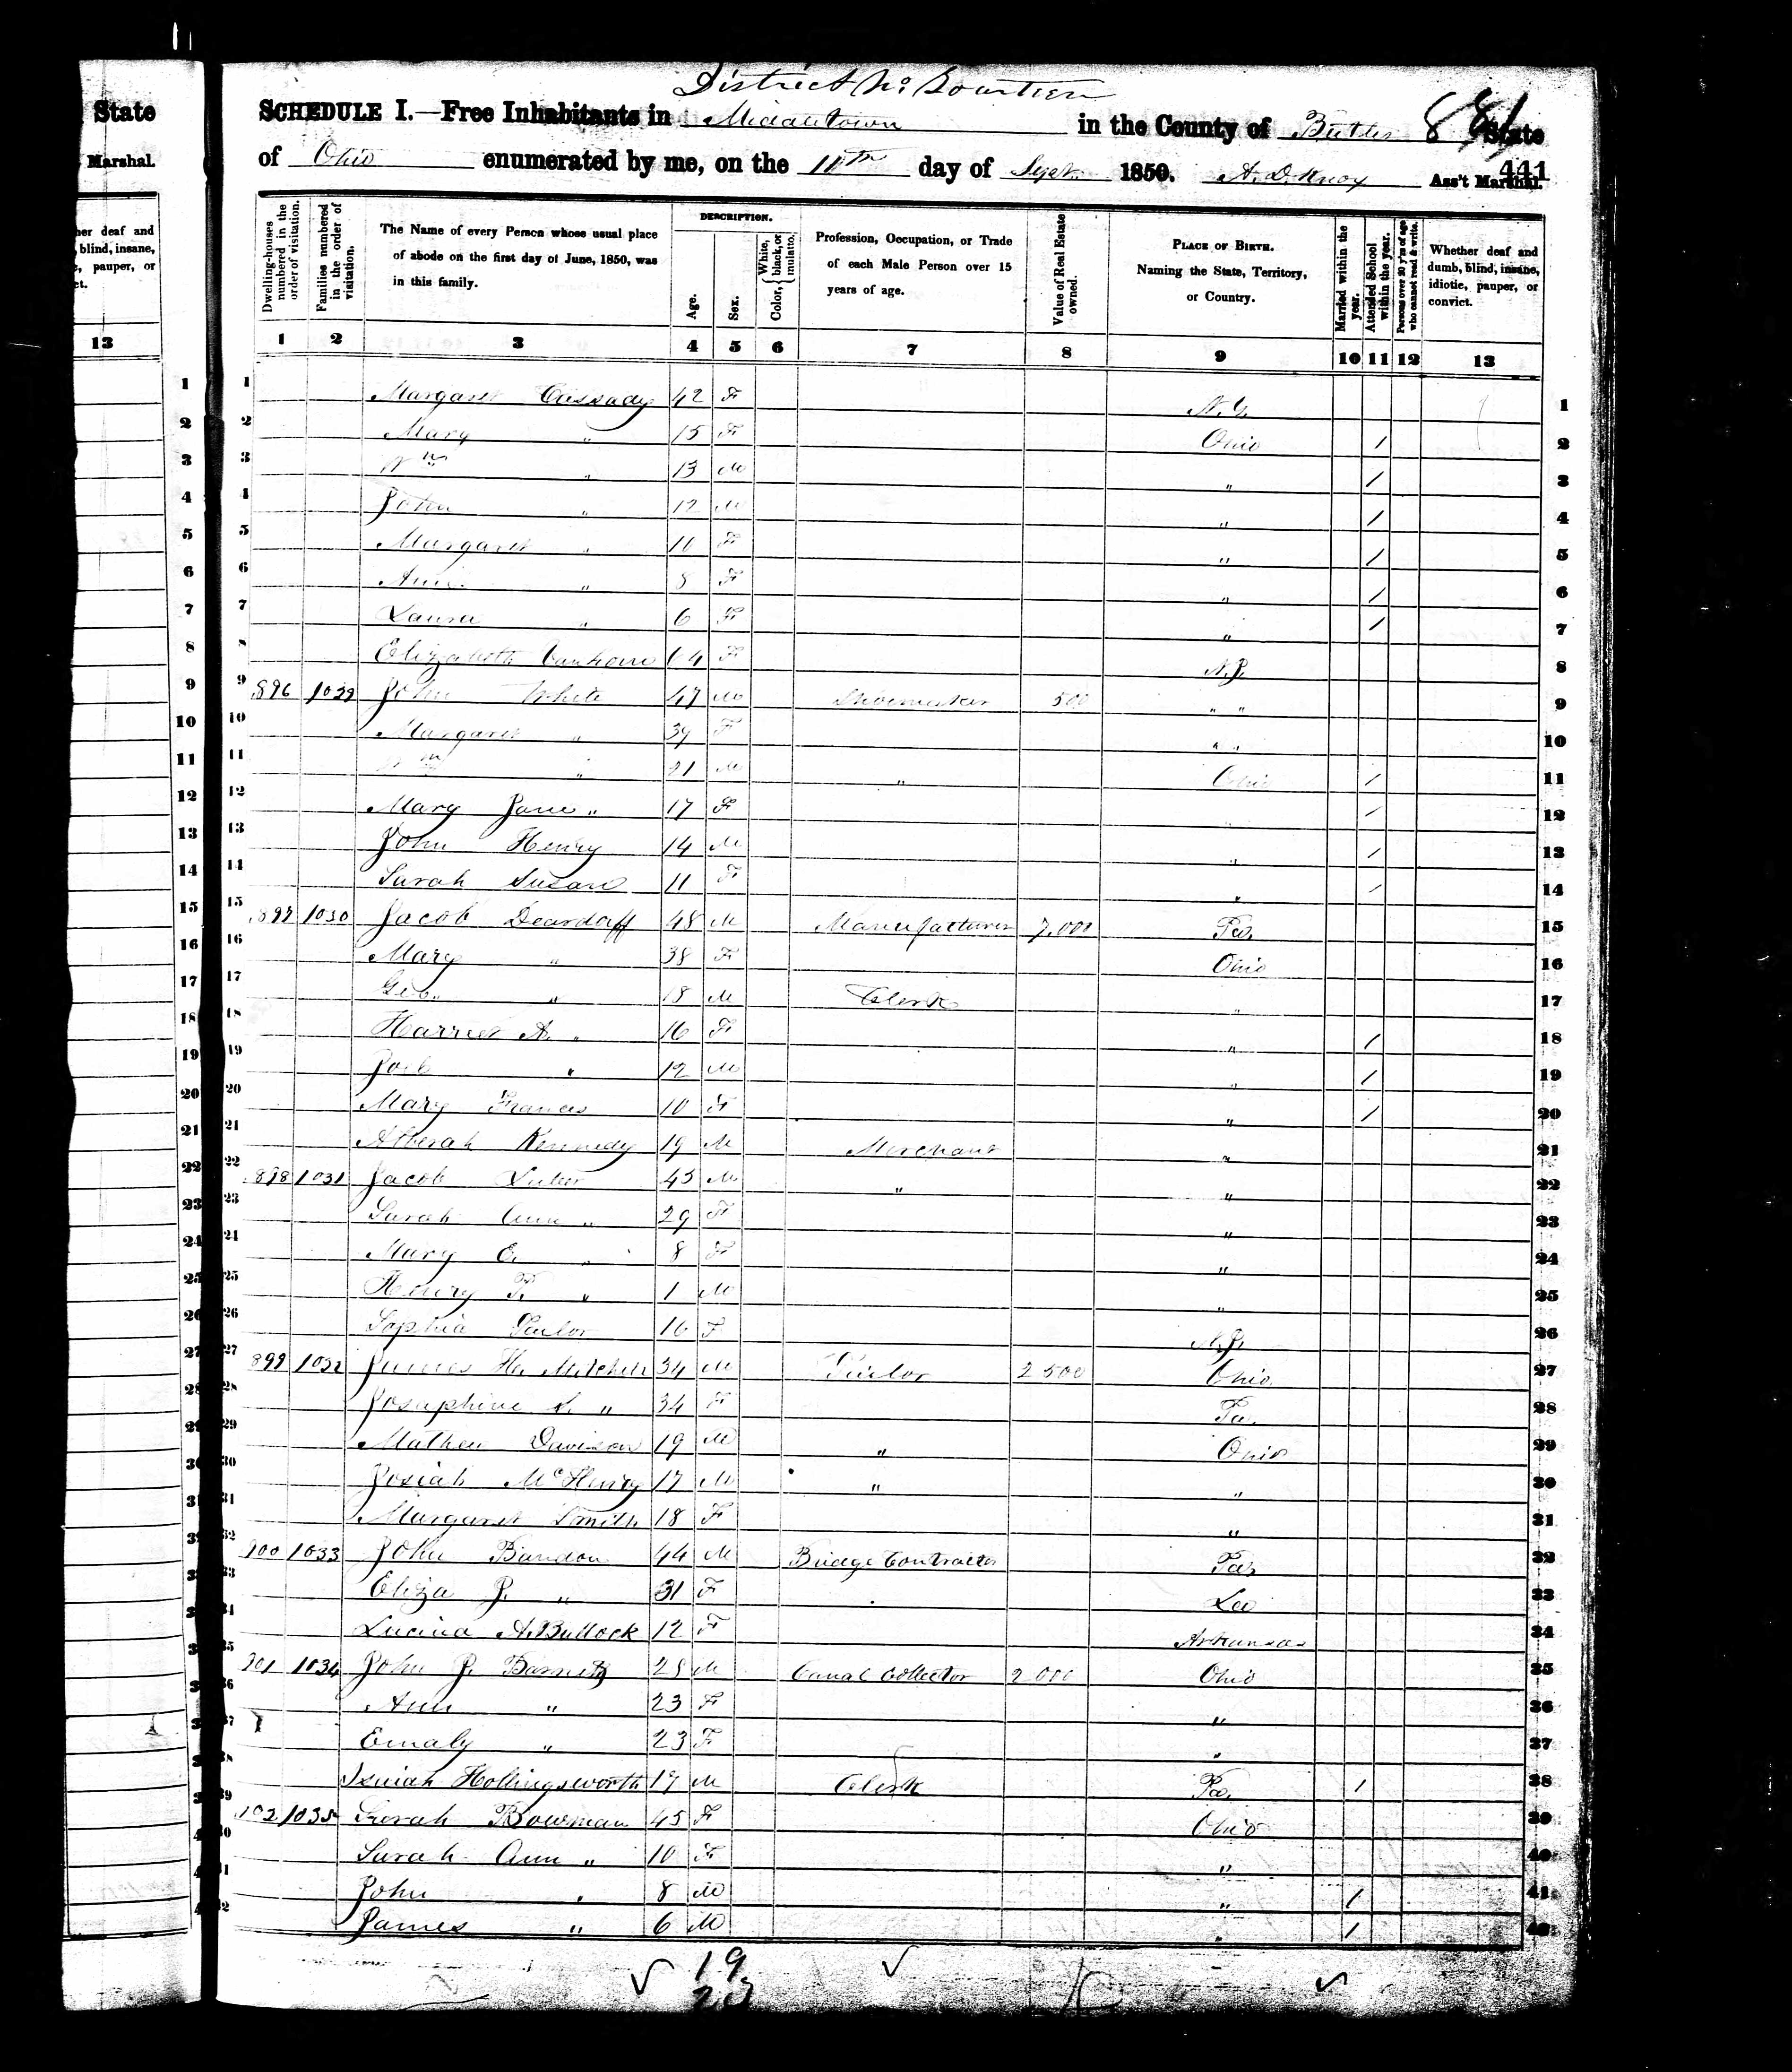 State
Marshal.
her deaf and
, blind, insane,
, pauper, or
ct.
13
District No Fourteen
881
SCHEDULE I.—Free Inhabitants in Middletown in the County of Butler State
of Ohio enumerated by me, on the 11th day of Sept. 1850. A. D. Knox Ass't Marshal.
441
Dwelling-houses numbered in the order of visitation.
Families numbered in the order of visitation.
The Name of every Person whose usual place of abode on the first day of June, 1850, was in this family.
DESCRIPTION.
Age.
Sex.
Color, { White, black, or mulatto.
Profession, Occupation, or Trade of each Male Person over 15 years of age.
Value of Real Estate owned.
PLACE OF BIRTH. Naming the State, Territory, or Country.
Married within the year.
Attended School within the year.
Persons over 20 y'rs of age who cannot read & write.
Whether deaf and dumb, blind, insane, idiotic, pauper, or convict.
1 2 3 4 5 6 7 8 9 10 11 12 13
1 Margaret Cassady 42 F 1
2 Mary " 15 F Ohio / 2
3 Wm " 13 M " / 3
4 John " 12 M " / 4
5 Margaret " 10 F " / 5
6 Ann " 8 F " / 6
7 Laura " 6 F " / 7
8 Elizabeth Vanhorn 64 F N.J. 8
9 896 1029 John White 47 M Shoemaker 500 " " 9
10 Margaret " 39 F " " 10
11 Wm " 21 M " Ohio / 11
12 Mary Jane " 17 F " / 12
13 John Henry 14 M " / 13
14 Sarah Susan 11 F " / 14
15 897 1030 Jacob Deardorff 48 M Manufacturer 7,000 Pa. 15
16 Mary " 38 F Ohio 16
17 Geo. " 18 M Clerk " 17
18 Harriet A. " 16 F " / 18
19 " 12 M " / 19
20 Mary Frances 10 F " / 20
21 Kennedy 19 M Merchant " 21
22 898 1031 Jacob 45 M " " 22
23 Sarah Ann " 29 F " 23
24 Mary E. " 8 F " 24
25 Henry F. " 1 M " 25
26 Sophia 16 F N.J. 26
27 899 1032 James H. Mitchell 34 M Tailor 2 500 Ohio 27
28 Josephine S. " 34 F Pa. 28
29 Mathew Davison 19 M " Ohio 29
30 Josiah McHenry 17 M " " 30
31 Margaret Smith 18 F " 31
32 900 1033 John Bandon 44 M Bridge Contractor Pa. 32
33 Eliza J. " 31 F La 33
34 Lucina A. Bullock 12 F Arkansas 34
35 901 1034 John P. Barnitz 28 M Canal Collector 2 000 Ohio 35
36 Ann " 23 F " 36
37 Emaly " 23 F " 37
38 Isaiah Hollingsworth 19 M Clerk Pa. / 38
39 902 1035 Sarah Bowman 45 F Ohio 39
40 Sarah Ann " 10 F " 40
41 John " 8 M " / 41
42 James " 6 M " / 42
19
23